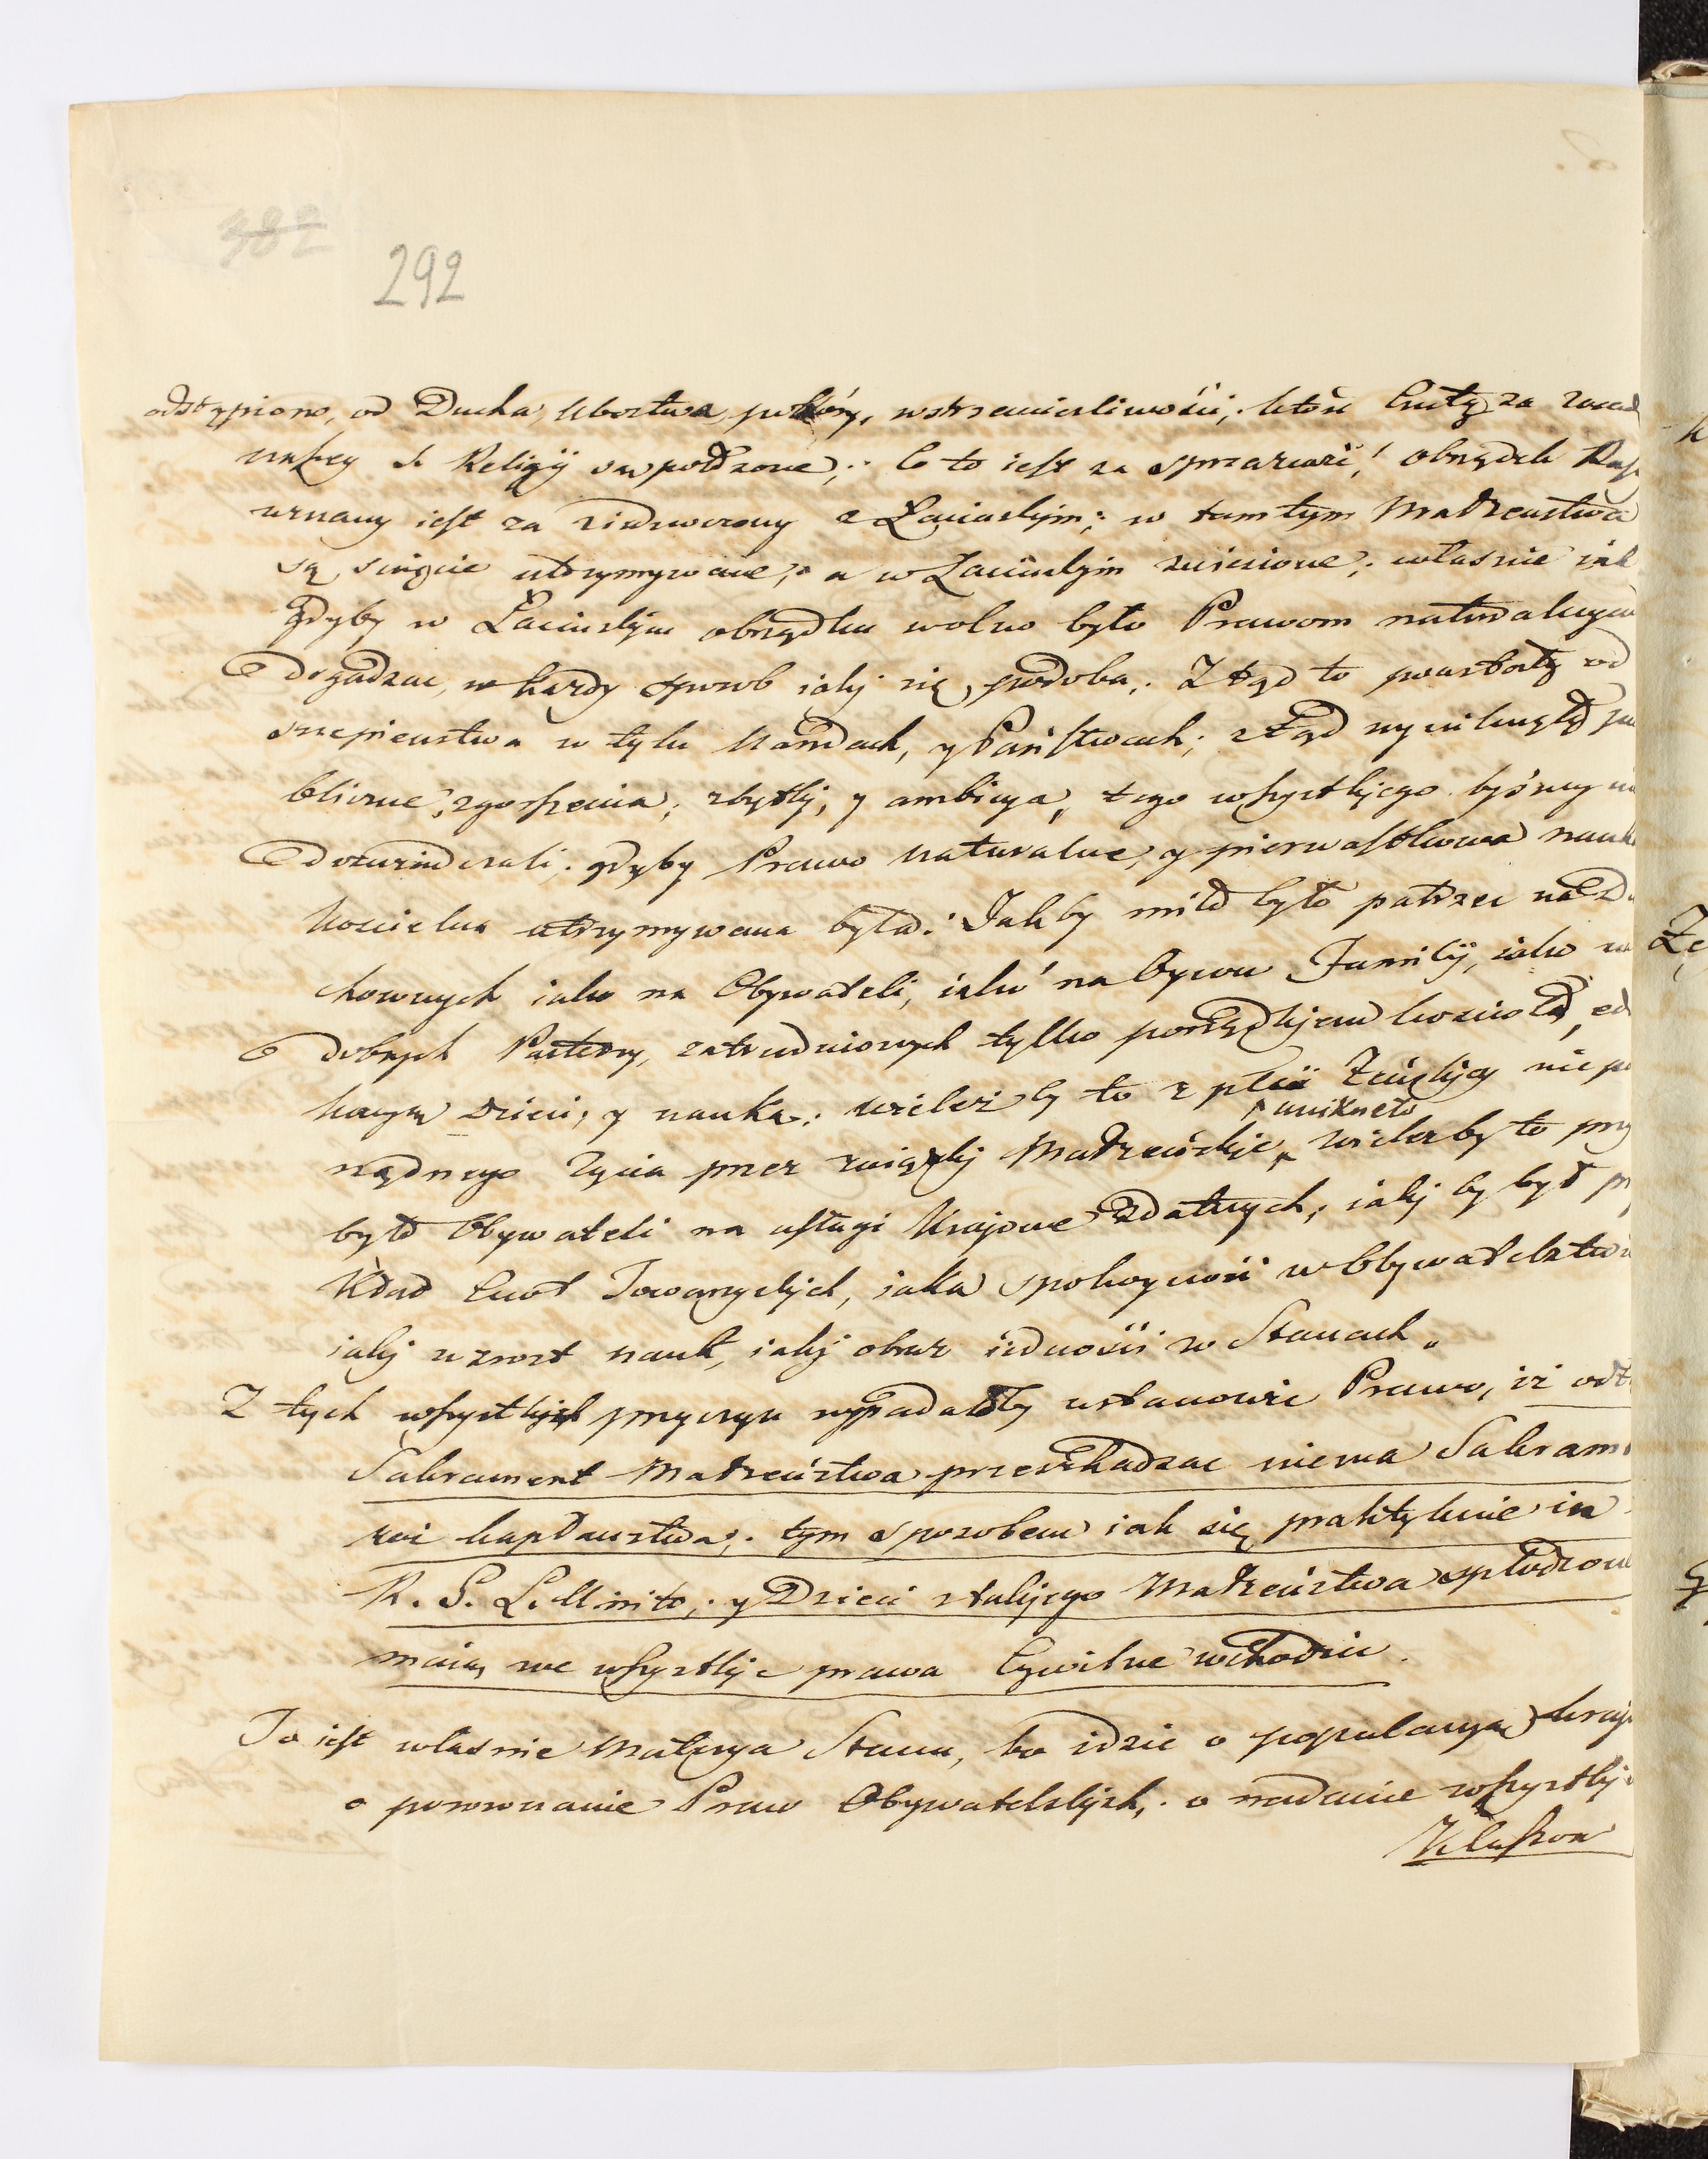 382
292
odstąpiono, od Ducha Ubostwa, pokóry, wstrzemięzliwości; które Cnoty za
naszey S. Religij są położone; Co to iest za sprzeczność! obrządek
uznany iest za ziednoczony z Łacinskim; w tamtym Małzenstwa
są święcie utrzymywane; a w Łacinskim zniesione; własnie iak
gdyby w Łacinskim obrządku wolno było Prawom naturalnym
dogadzać, w kazdy sposob iakj się podoba; Ztąd to powstały od
szczepienstwa w tylu Narodach, y Państwach; ztąd wyniknęły
bliczne zgorszenia; zbytkj, y ambicya, tego wszystkjego byśmy
doświadczali; gdyby Prawo naturalne, y pierwastkowa
Koscielna utrzymywana była. Jak by miło było patrzec na
chownych iako na Obywateli, iako na Oyców Familij, iako
dobrych Pasterzy, zatrudnionych tylko porządkjem koscioła,
Dzieci, y nauką; wieleż by to z płci Zenskjey
rządnego życia przez związkj Małzenskje uniknęło, wieleż by to
było Obywateli na usługi Krajowe zdatnych; iakj by był
kład Cnot Towarzyskjch, iaka spokoyność w Obywatelstwie
iakj wzrost nauk, iakj obraz iedności w Stanach„
Z tych wszystkjch przyczyn wypadałoby ustanowić Prawo, iż
Sakrament Małzeństwa przeszkadzac niema
kapłanstwa; tym sposobem iak się praktykuie in
R. G. L. Unito; y Dzieci z takjego Małzeństwa spłodzone
maią we wszystkje prawa Cywilne wchodzic.
To iest własnie Materya Stanu, bo idzie o populacyą
o porownanie Praw Obywatelskjch; o nadanie